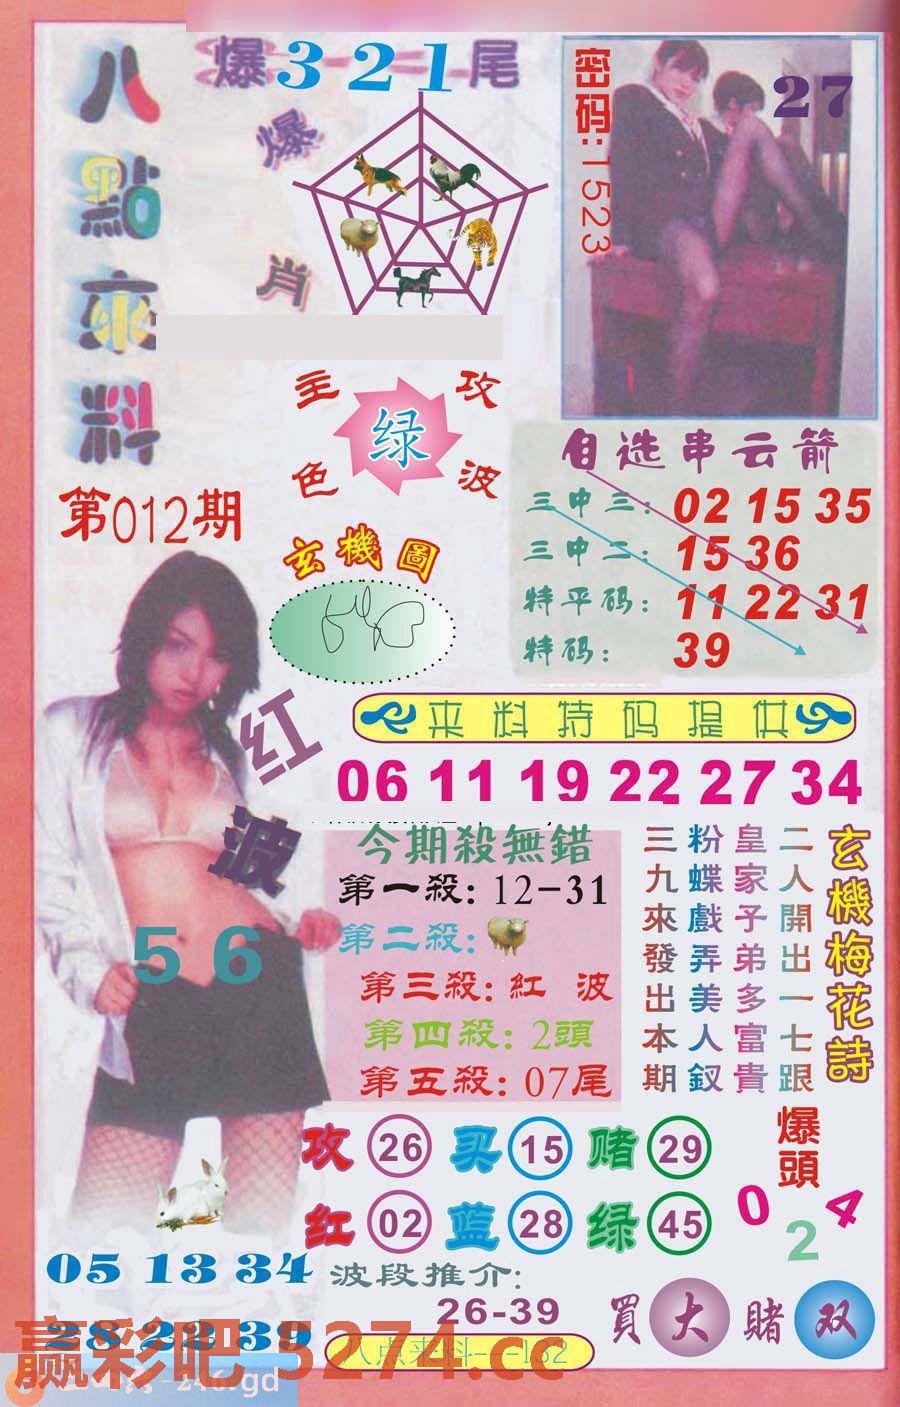 八點來料
爆321尾
爆肖
密码:1523
27
主攻
绿
色波
第012期
自选串云箭
三中三: 02 15 35
三中二: 15 36
特平码: 11 22 31
特码: 39
玄機圖
红波
56
来料特码提供
06 11 19 22 27 34
今期殺無錯
第一殺: 12-31
第二殺:
第三殺: 紅 波
第四殺: 2頭
第五殺: 07尾
玄機梅花詩
二人開出一七跟
皇家子弟多富貴
粉蝶戲弄美人釵
三九來發出本期
攻 26 买 15 赌 29
红 02 蓝 28 绿 45
爆頭
0 2 4
05 13 34
28 22 39
波段推介:
26-39
買大賭双
赢彩吧 5274.cc
-246.gd